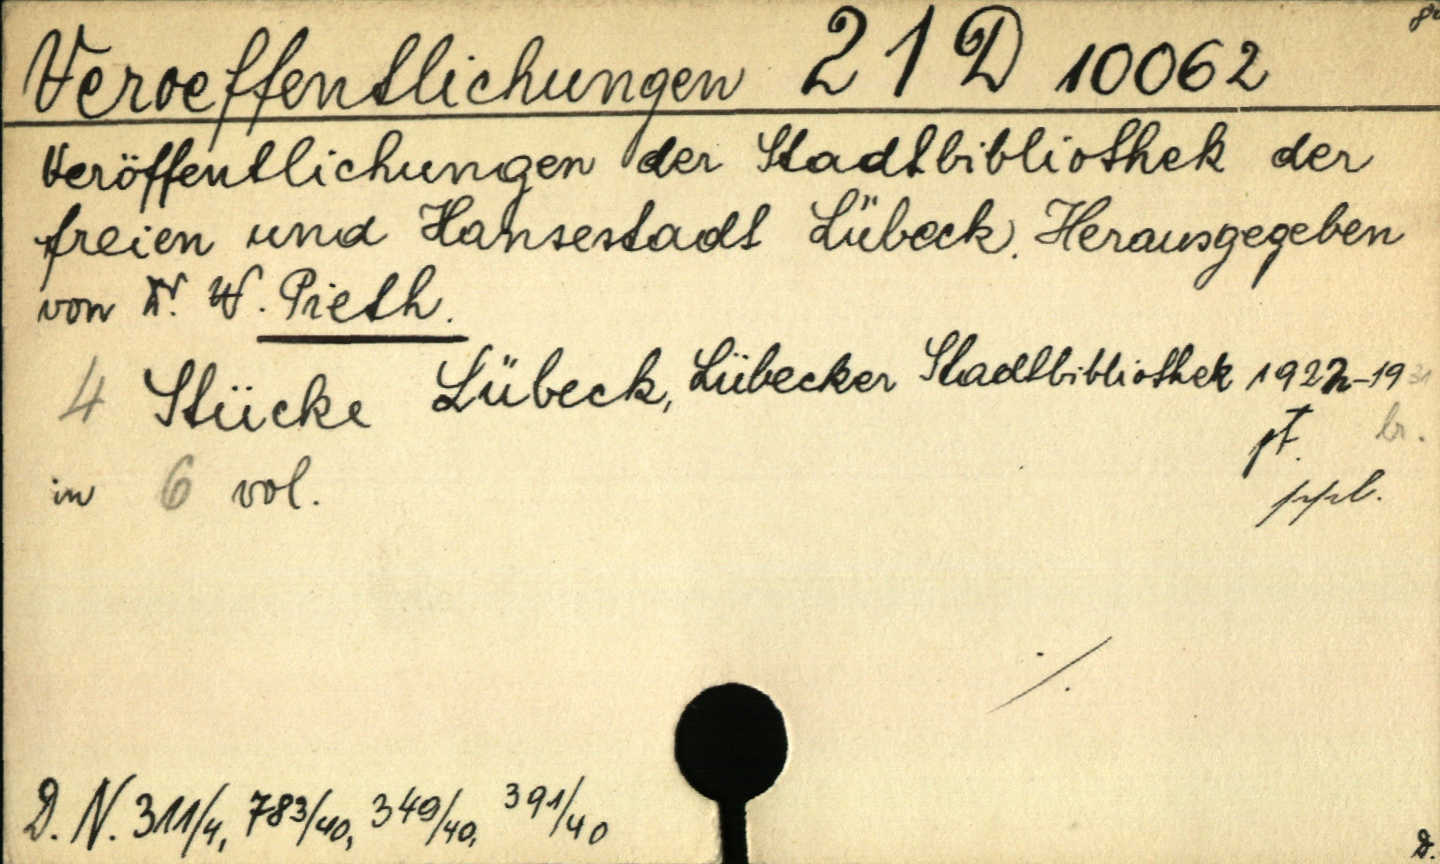 Veroeffentlichungen 21 D 10062 8°
Veröffentlichungen der Stadtbibliothek der
freien und Hansestadt Lübeck. Herausgegeben
von Dr. W. Pieth.
4 Stücke Lübeck, Lübecker Stadtbibliothek 1922-1931
pt. br.
in 6 vol. ppb.
./.
D. N. 311/4, 783/40, 349/40, 391/40
D.